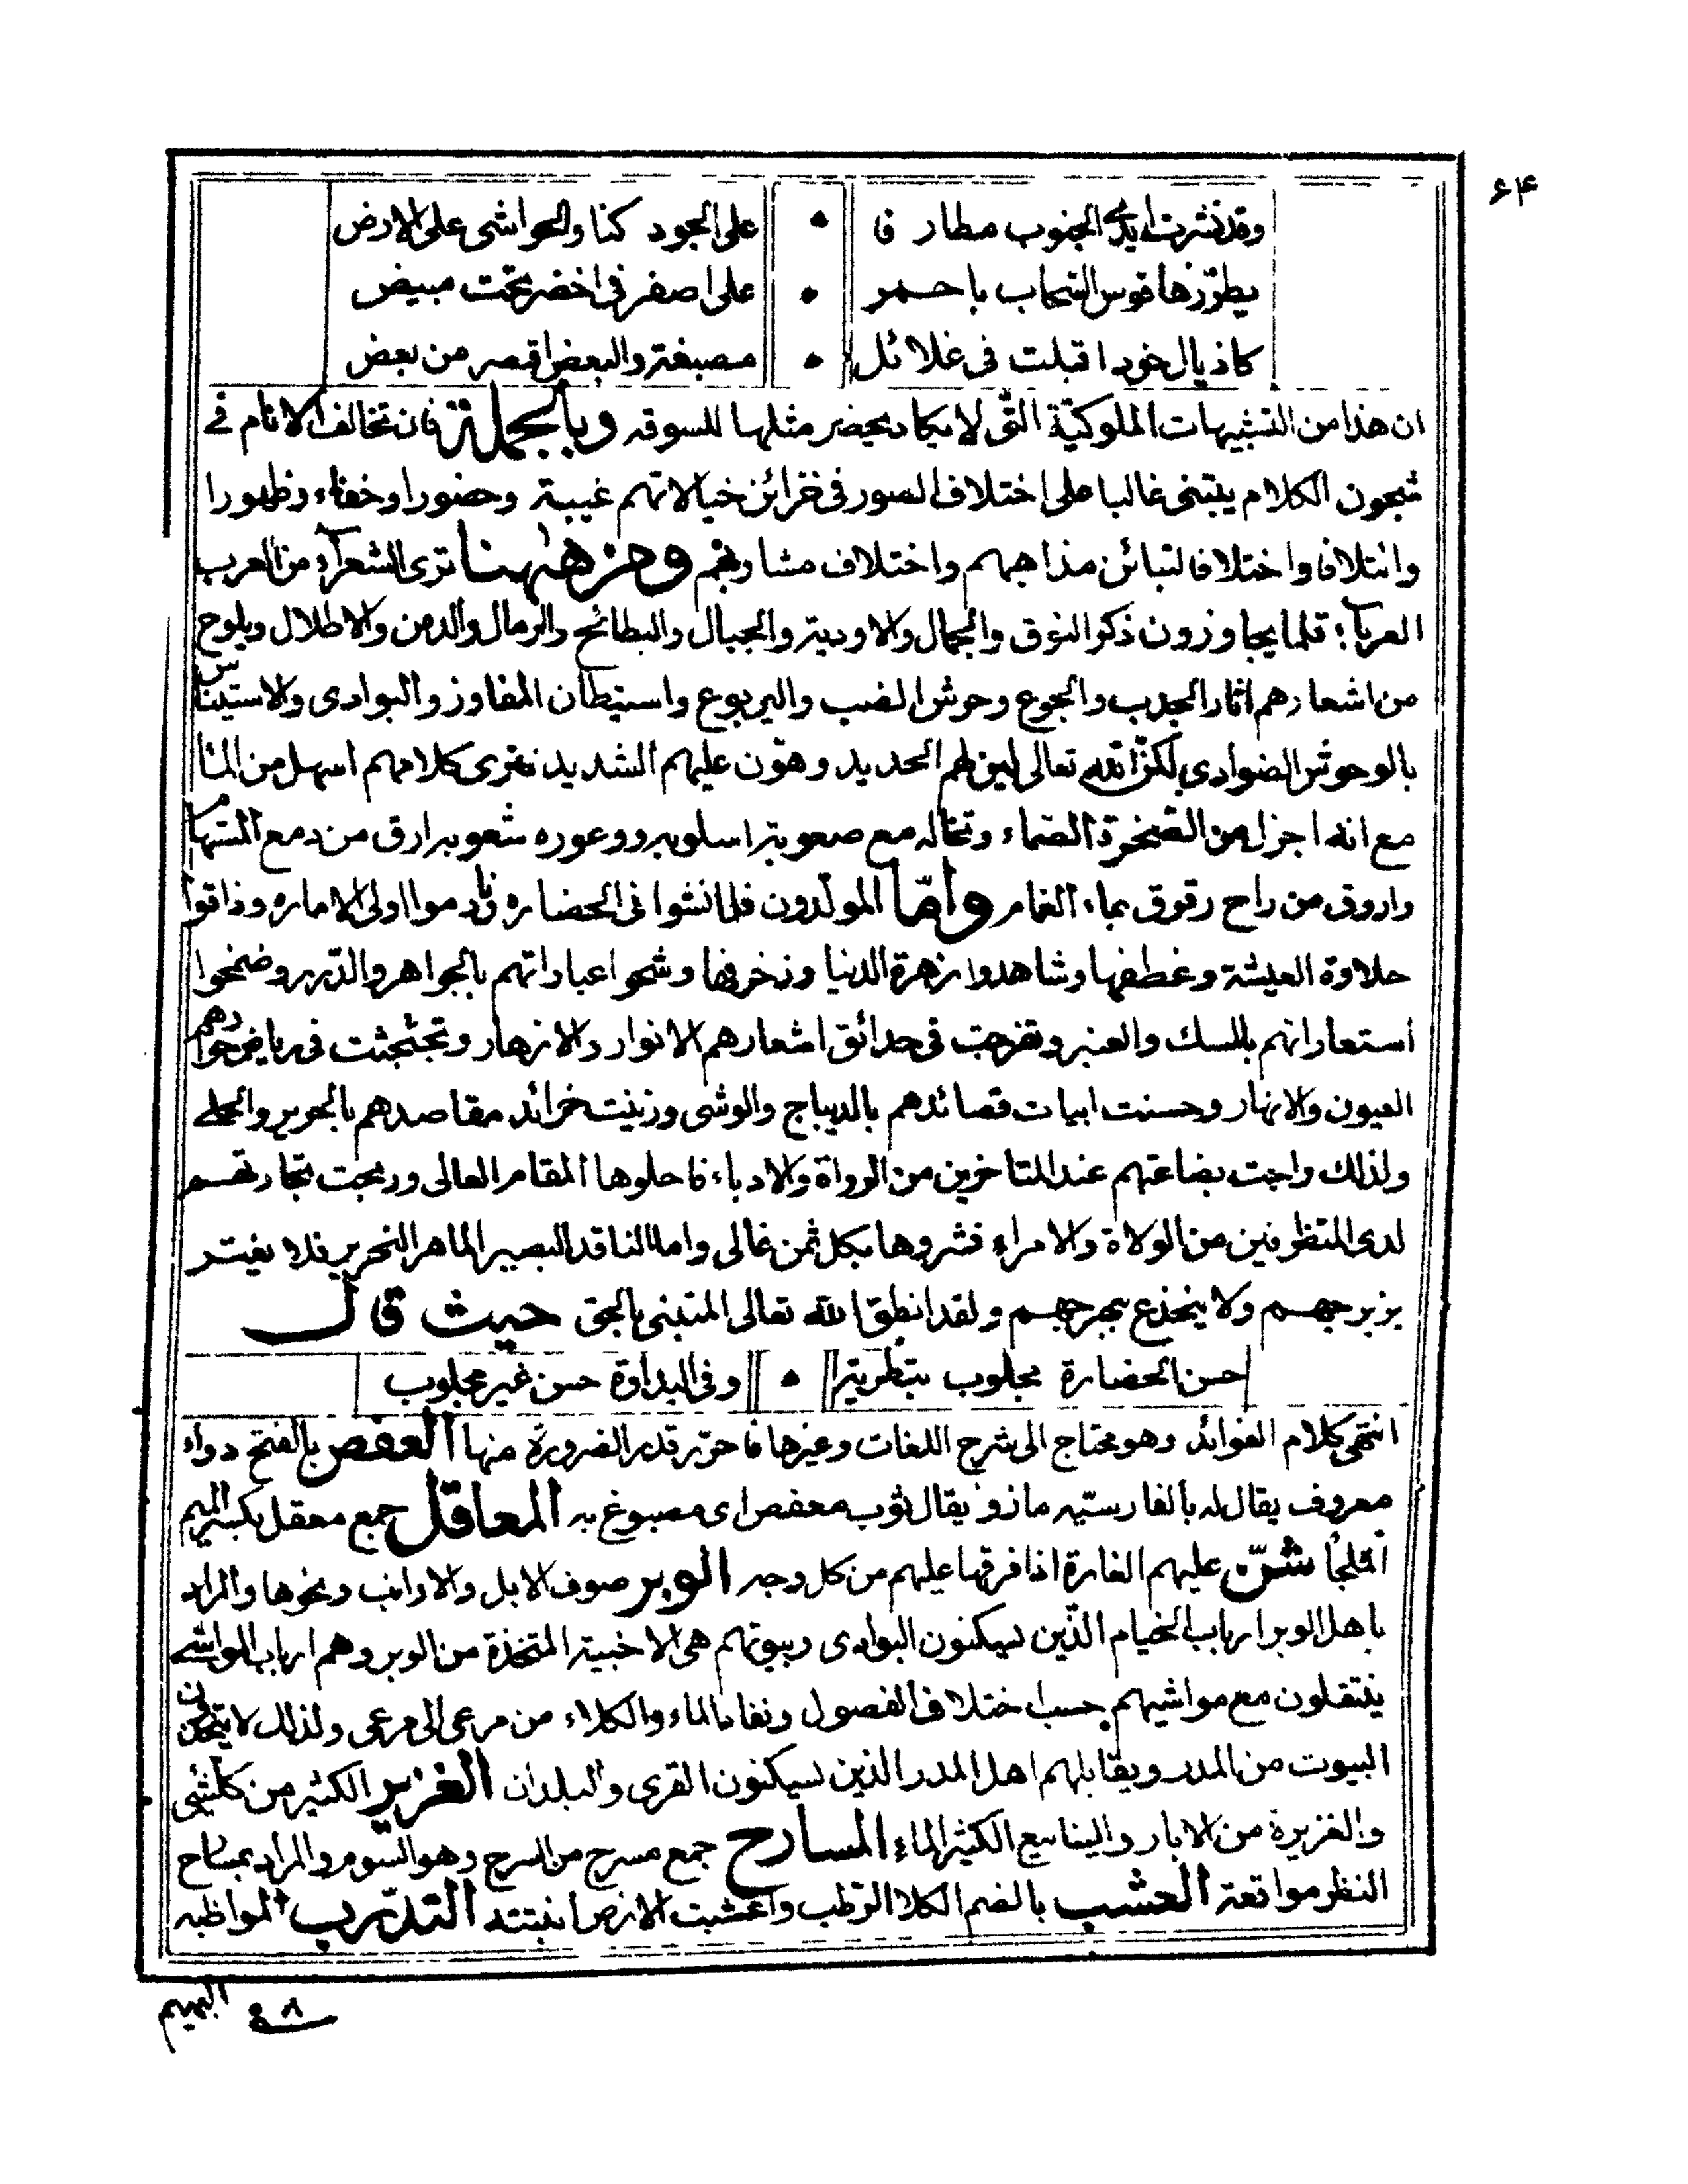 ۶۴
وقد نشرت ايدى الجنوب مطارفا • على الجود كنا والحواشى على الارض
يطرّزها قوس السّحاب باحمر • على اصفر فى اخضر تحت مبيض
كاذيال خود اقبلت فى غلائل • مصبغة والبعض اقصر من بعض
ان هذا من التشبيهات الملوكيّة التّى لا يكاد يحضر مثلها للسوقه وبالجملة فان تخالف الانام فى
شجون الكلام يبتنى غالبا على اختلاف الصور فى خزائن خيالاتهم غيبة وحضورا وخفاء وظهورا
وائتلافا واختلافا لتبائن مذاهبهم واختلاف مشاربهم ومن ههنا ترى الشعرآء من العرب
العربآء قلما يجاوزون ذكر النوق والجمال والاودية والجبال والبطائح والرمال والدمن والاطلال ويلوح
من اشعارهم اثار الجدب والجوع وحوش الضب واليربوع واستيطان المفاوز والبوادى والاستيناس
بالوحوش الضوادى لكنّ الله تعالى لين لهم الحديد وهوّن عليهم الشديد فترى كلامهم اسهل من الماء
مع انه اجزل من الصّخرة الصّماء وتخاله مع صعوبة اسلوبه ووعوره شعوبه ارق من دمع المستهام
واروق من راح رقوق بماء الغمام وامّا المولّدون فلما نشوا فى الحضاره ونادموا اولى الاماره وذاقوا
حلاوة العيشة وغطفها وشاهدوا زهرة الدنيا وزخرفها وشحوا عباداتهم بالجواهر والدّرر وضمخوا
استعاراتهم بالمسك والعنبر وتفرجت فى حدائق اشعارهم الانوار والازهار وتجثجثت فى رياض حوارهم
العيون والانهار وحسنت ابيات قصائدهم بالديباج والوشى وزينت خرائد مقاصدهم بالحرير والحلى
ولذلك راجت بضاعتهم عند المتاخرين من الرواة والادباء فاحلوها المقام العالى وربحت تجارتهم
لدى المتظرفين من الولاة والامراء فشروها بكل ثمن غالى واما الناقد البصير الماهر النحرير فلا يغيتر
بزبرجهم ولا ينخدع ببهرجهم ولقد انطق الله تعالى المتبنى بالحق حيث قال
حسن الحضارة مجلوب بتطرية • وفى البداوة حسن غير مجلوب
انتهى كلام الفوائد وهو محتاج الى شرح اللغات وغيرها فاحرّر قدر الضرورة منها العفص بالفتح دواء
معروف يقال له بالفارستيه مازو يقال ثوب معفص اى مصبوغ به المعاقل جمع معقل بكسر الميم
الملجأ شنّ عليهم الغارة اذا فرقها عليهم من كل وجه الوبر صوف الابل والارانب ونحوها والمراد
باهل الوبر ارباب الخيام الّذين يسكنون البوادى وبيوتهم هى الاخبية المتخذة من الوبر وهم ارباب المواشى
ينتقلون مع مواشيهم حسب اختلاف الفصول ونفاد الماء والكلاء من مرعى الى مرعى ولذلك لا يتخذون
البيوت من المدر ويقابلهم اهل المدر الذين يسكنون القرى والبلدان الغزير الكثير من كلشئى
والغزيرة من الابار والينابيع الكثير الماء المسارح جمع مسرح من السرح وهو السوم والمراد بمسارح
النظر مواقعة العشب بالضم الكلا الرّطب واعشبت الارض انبتته التدرّب المواظبه
البهيم ۹۸